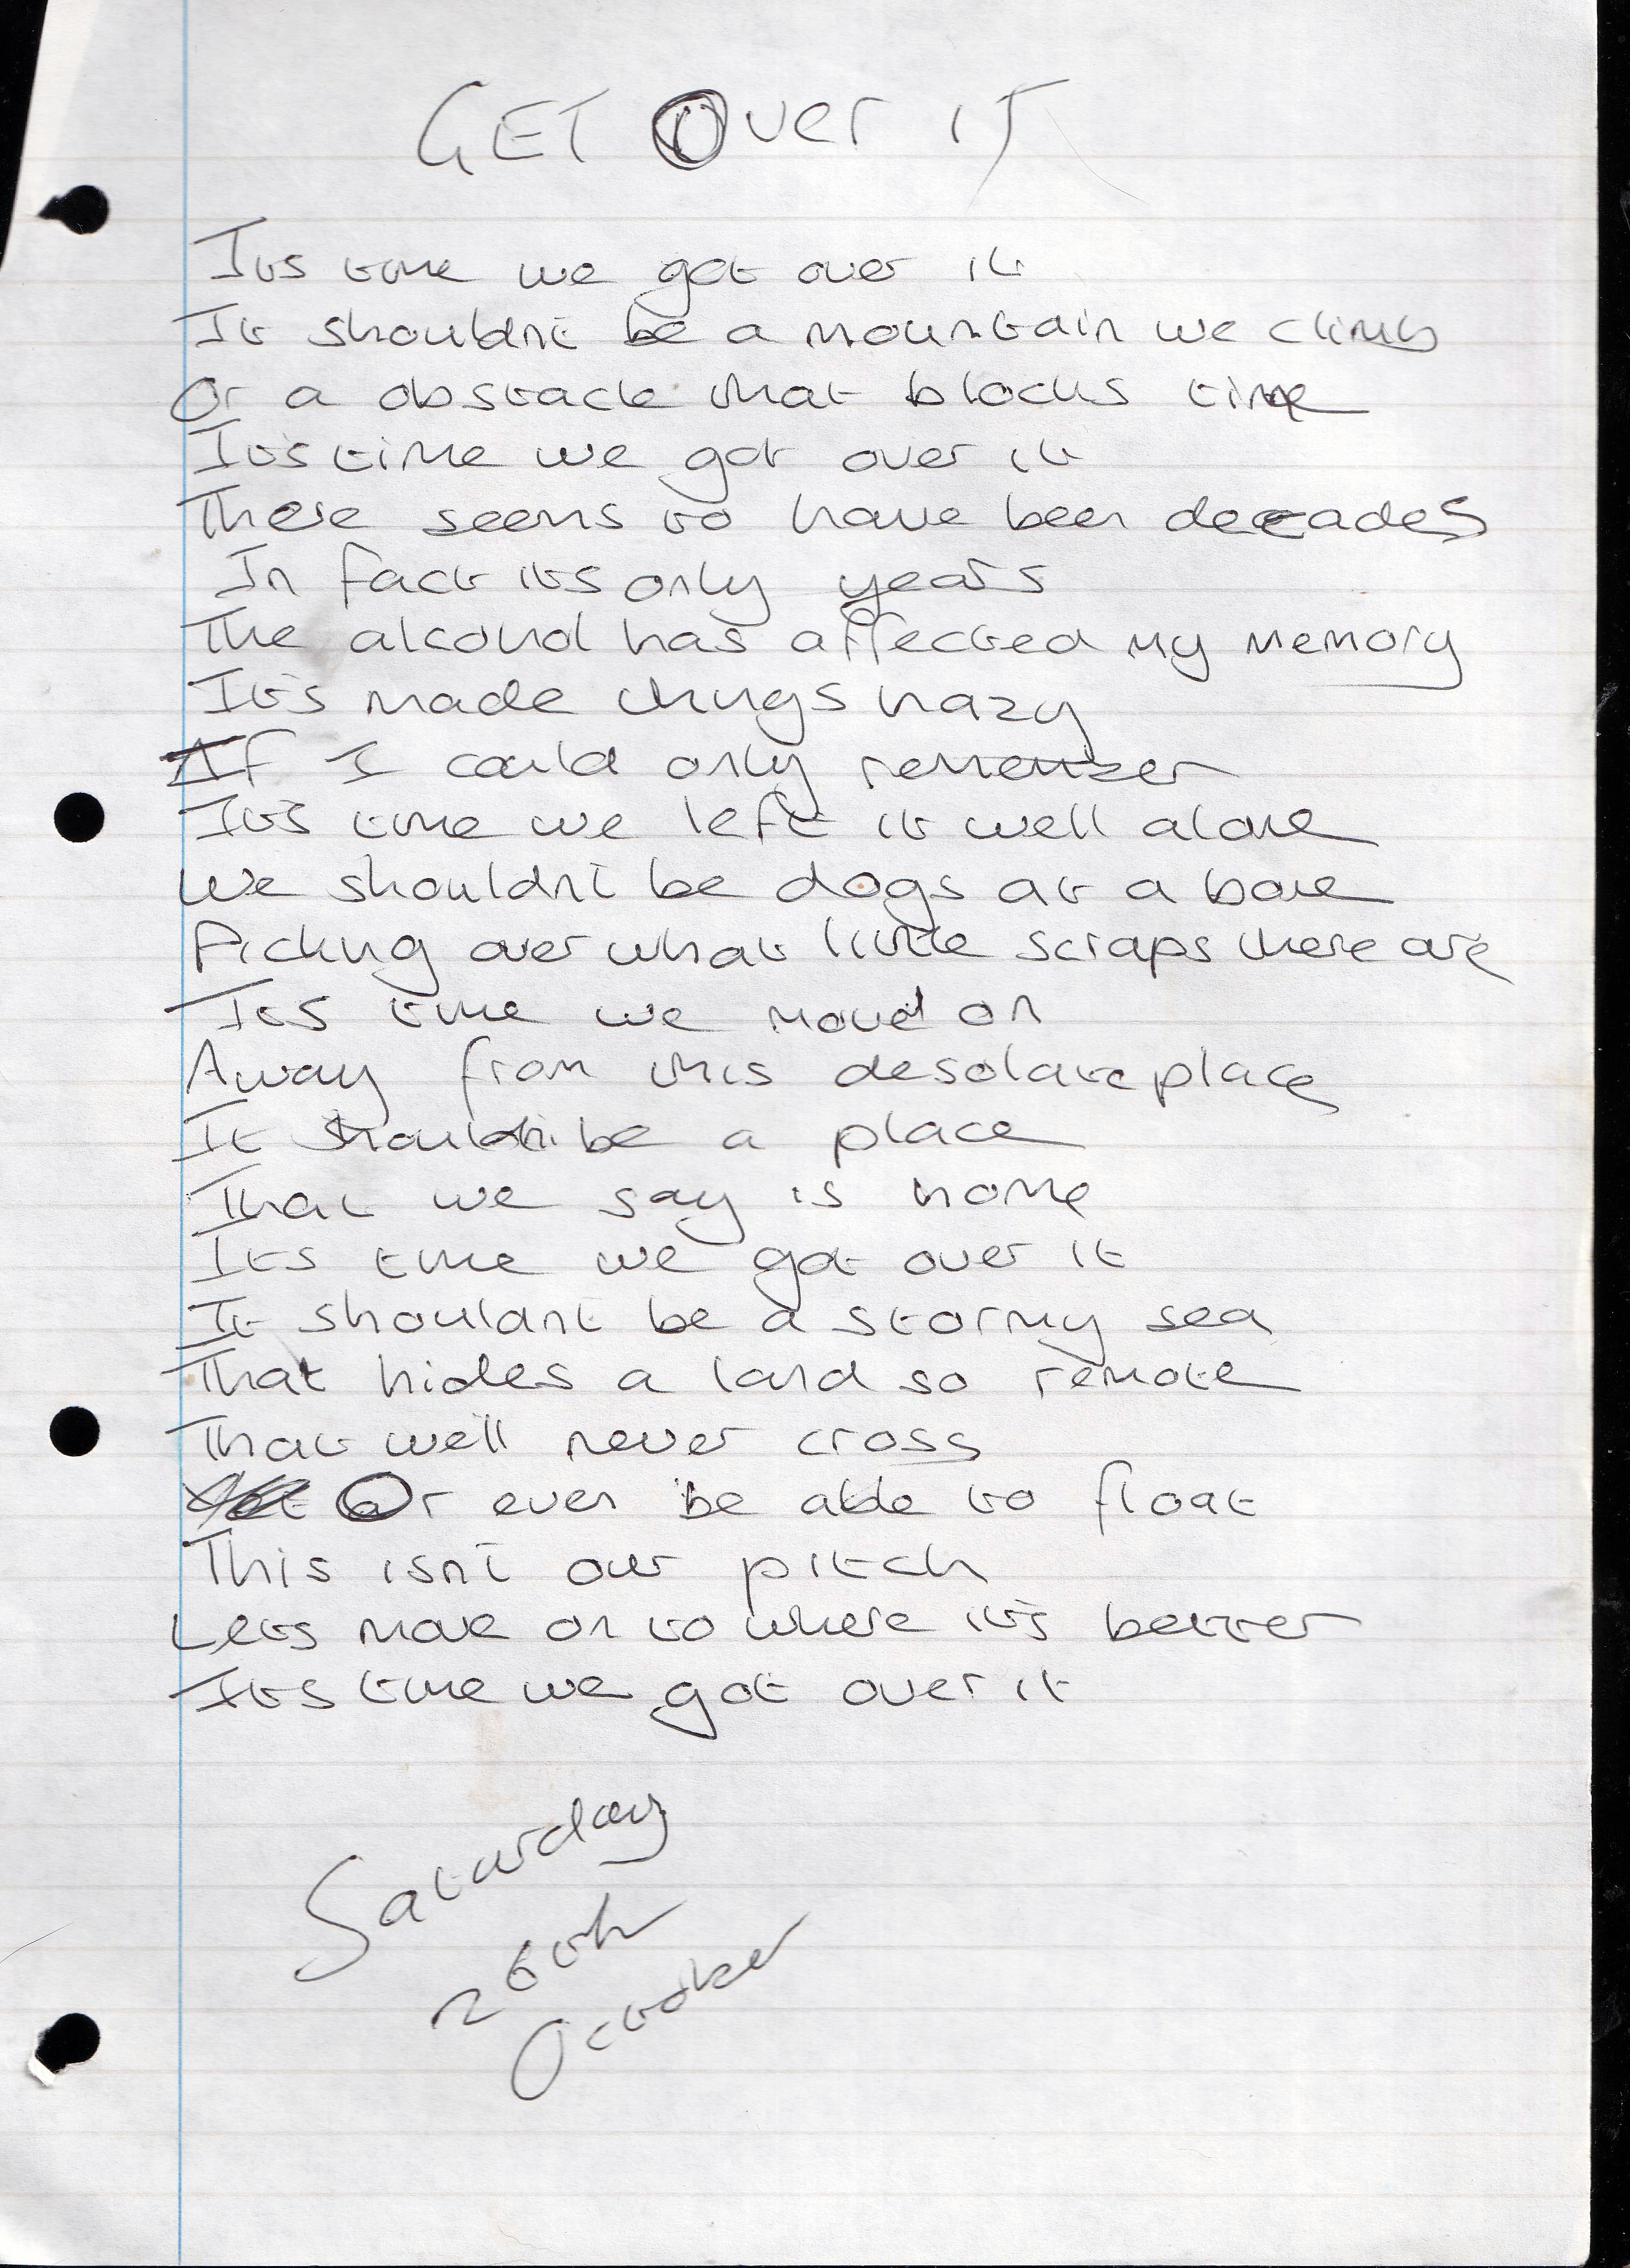 GET Over IT
Its time we got over it
It shouldn't be a mountain we climb
Or a obstacle that blocks time
It's time we got over it
There seems to have been decades
In fact its only years
The alcohol has affected my memory
It's made things hazy
If I could only remember
It's time we left it well alone
We shouldn't be dogs at a bone
Picking over what little scraps there are
Its time we moved on
Away from this desolate place
It shouldn't be a place
That we say is home
Its time we got over it
It shouldnt be a stormy sea
That hides a land so remote
That we'll never cross
Or even be able to float
This isn't our pitch
Lets move on to where it's better
Its time we got over it
Saturday
26th
October